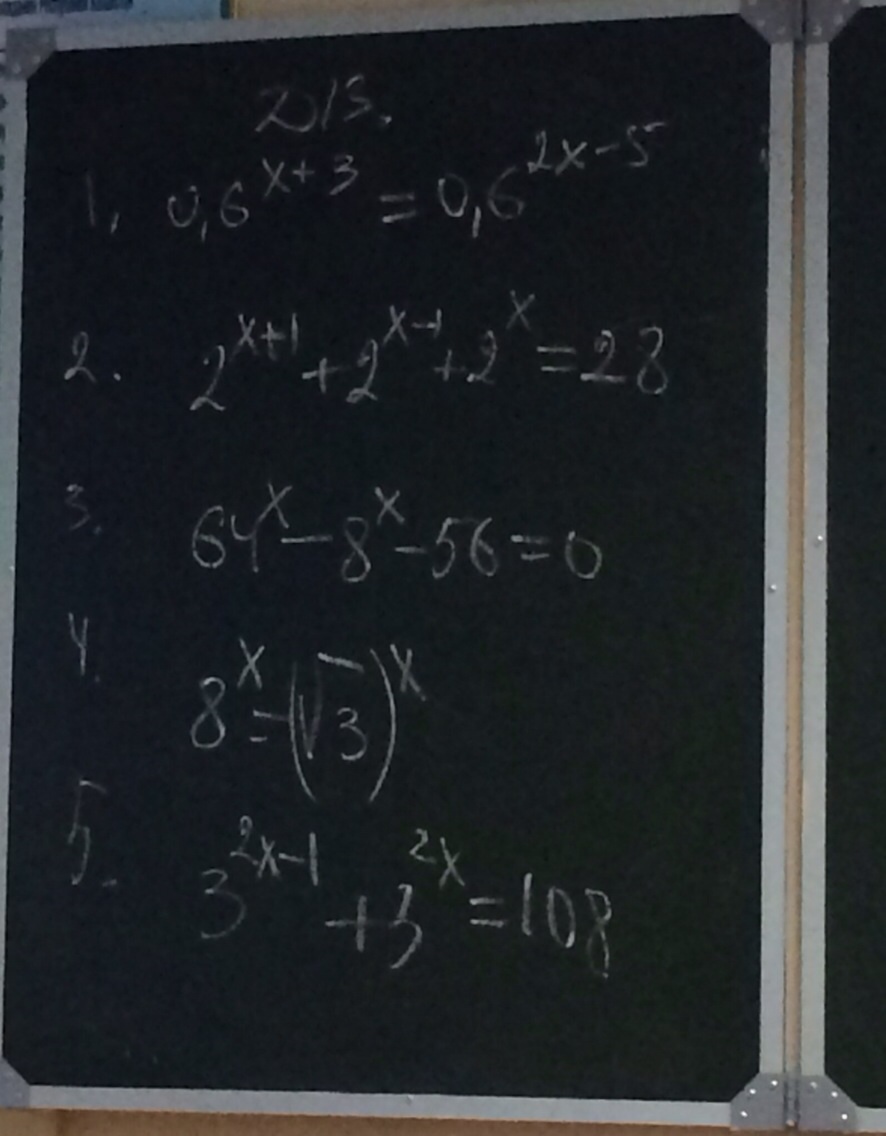 Д/З.
1. 0,6^{x+3} = 0,6^{2x-5}
2. 2^{x+1} + 2^{x-1} + 2^{x} = 28
3. 64^{x} - 8^{x} - 56 = 0
4. 8^{x} = (√3)^{x}
5. 3^{2x-1} + 3^{2x} = 108